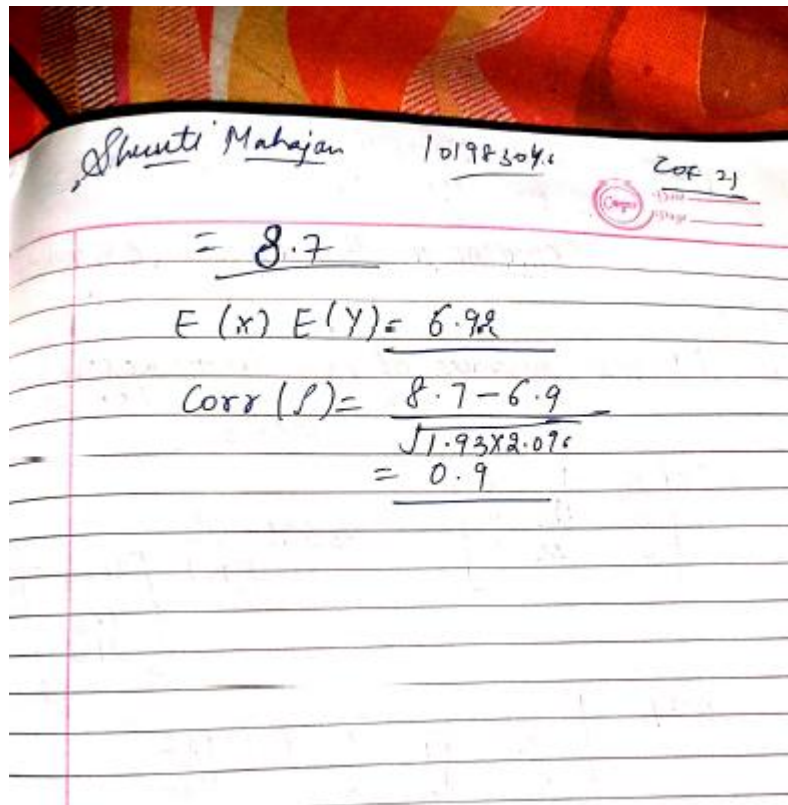 Shruti Mahajan 101983046 COE 21
= 8.7
E (x) E(Y) = 6.92
Corr (ρ) = 8.7 - 6.9
√1.93x2.096
= 0.9